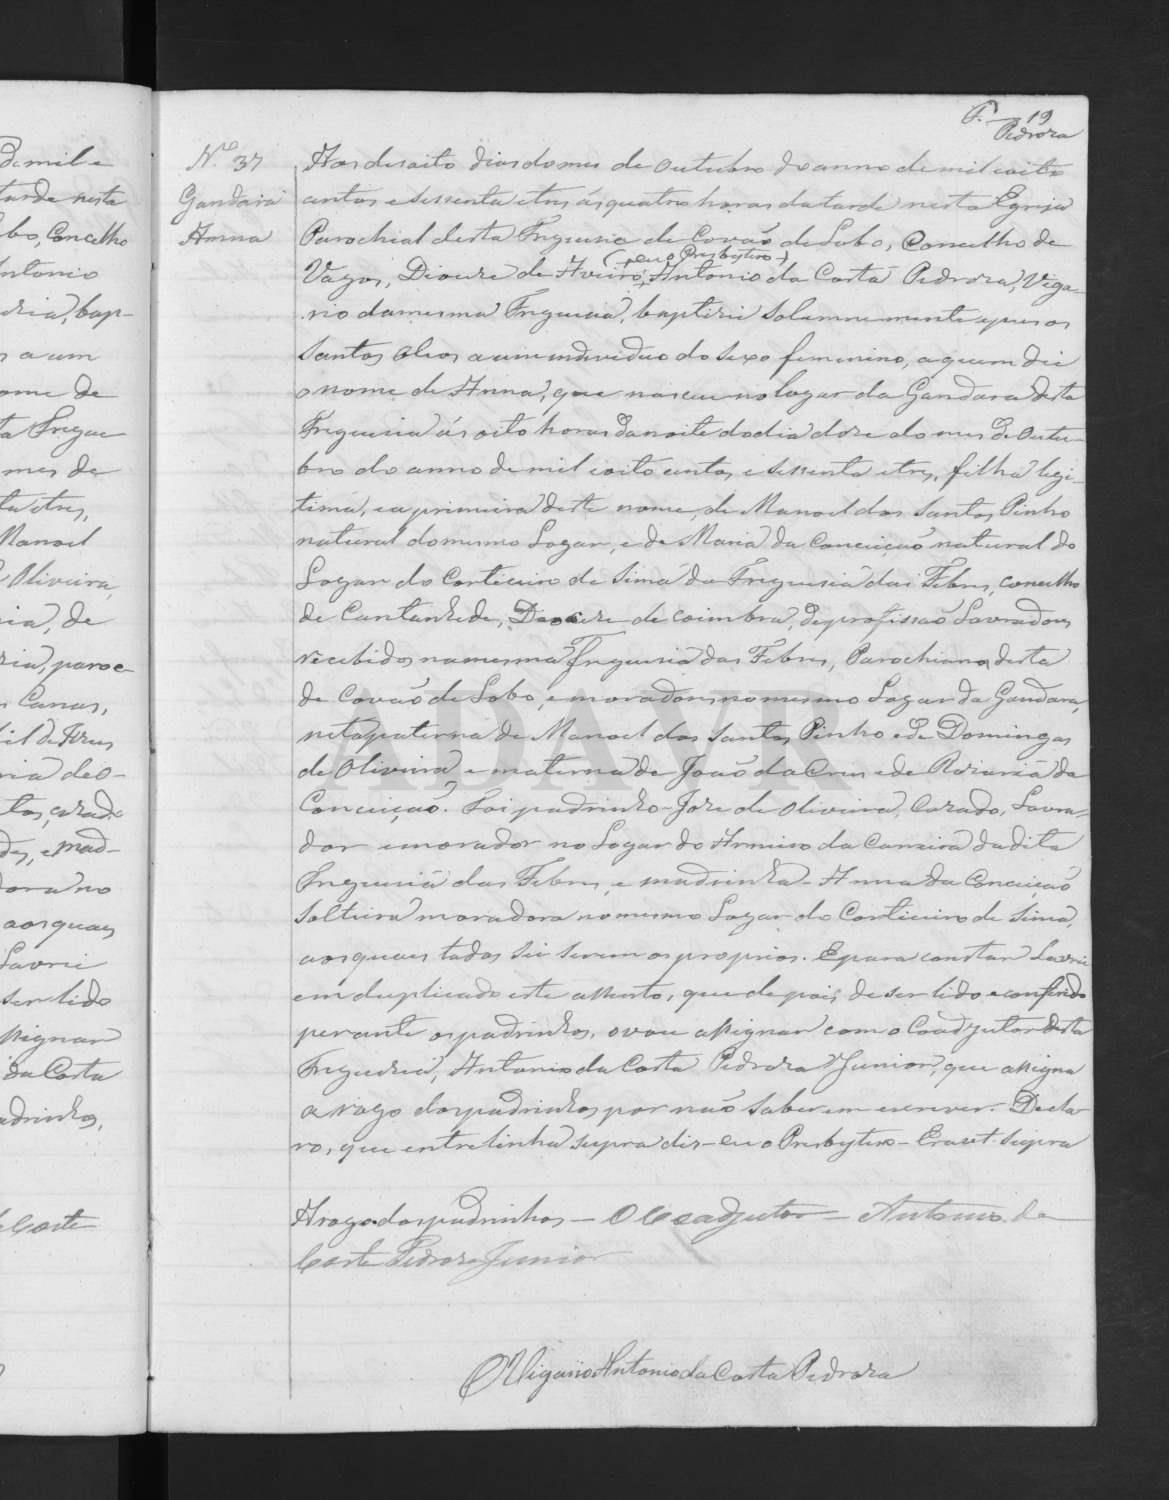 F. 19
Pedroza
N.º 37
Gandara
Anna
Aos desoito dias do mes de Outubro do anno de mil oito
centos e sessenta e tres ás quatro horas da tarde nesta Egreja
Parochial desta Freguesia de Covão de Lobo, Concelho de
(eu o Presbytero)
Vagos, Diocese de Aveiro, Antonio da Costa Pedroza, Viga-
rio da mesma Freguesia, baptizei solemnemente e pus os
Santos Oleos a um individuo do sexo femenino, a quem dei
o nome de Anna, que nasceu no lugar da Gandara desta
Freguesia ás oito horas da noite do dia doze do mes de Outu-
bro do anno de mil oito centos e sessenta e tres, filha legi-
tima, e a primeira deste nome, de Manoel dos Santos Pinho
natural do mesmo Logar, e de Maria da Conceição natural do
Logar do Corticeiro de Sima da Freguesia das Febres, concelho
de Cantanhede, Diocese de Coimbra, de profissão Lavradores
recebidos na mesma Freguesia das Febres, Parochianos desta
de Covão de Lobo, e moradores no mesmo Logar da Gandara,
neta paterna de Manoel dos Santos Pinho e de Domingas
de Oliveira e materna de João da Cruz e de Rozaria da
Conceição. Foi padrinho - Joze de Oliveira, Cazado, Lavra-
dor e morador no Logar do Arneiro da Carreira da dita
Freguesia das Febres, e madrinha - Anna da Conceição
Solteira moradora no mesmo Logar do Corticeiro de Sima,
aos quais todos sei serem os proprios. E para constar Lavrei
em duplicado este assento, que depois de ser lido e conferido
perante os padrinhos, o vou assignar com o Coadjutor desta
Freguezia, Antonio da Costa Pedroza Junior, que assigna
a rogo dos padrinhos por não saberem escrever. Decla-
ro, que entrelinha supra diz - eu o Presbytero - Era ut supra
A rogo dos padrinhos - O Coadjutor - Antonio da
Costa Pedroza Junior
O Vigario Antonio da Costa Pedroza
ADAVR